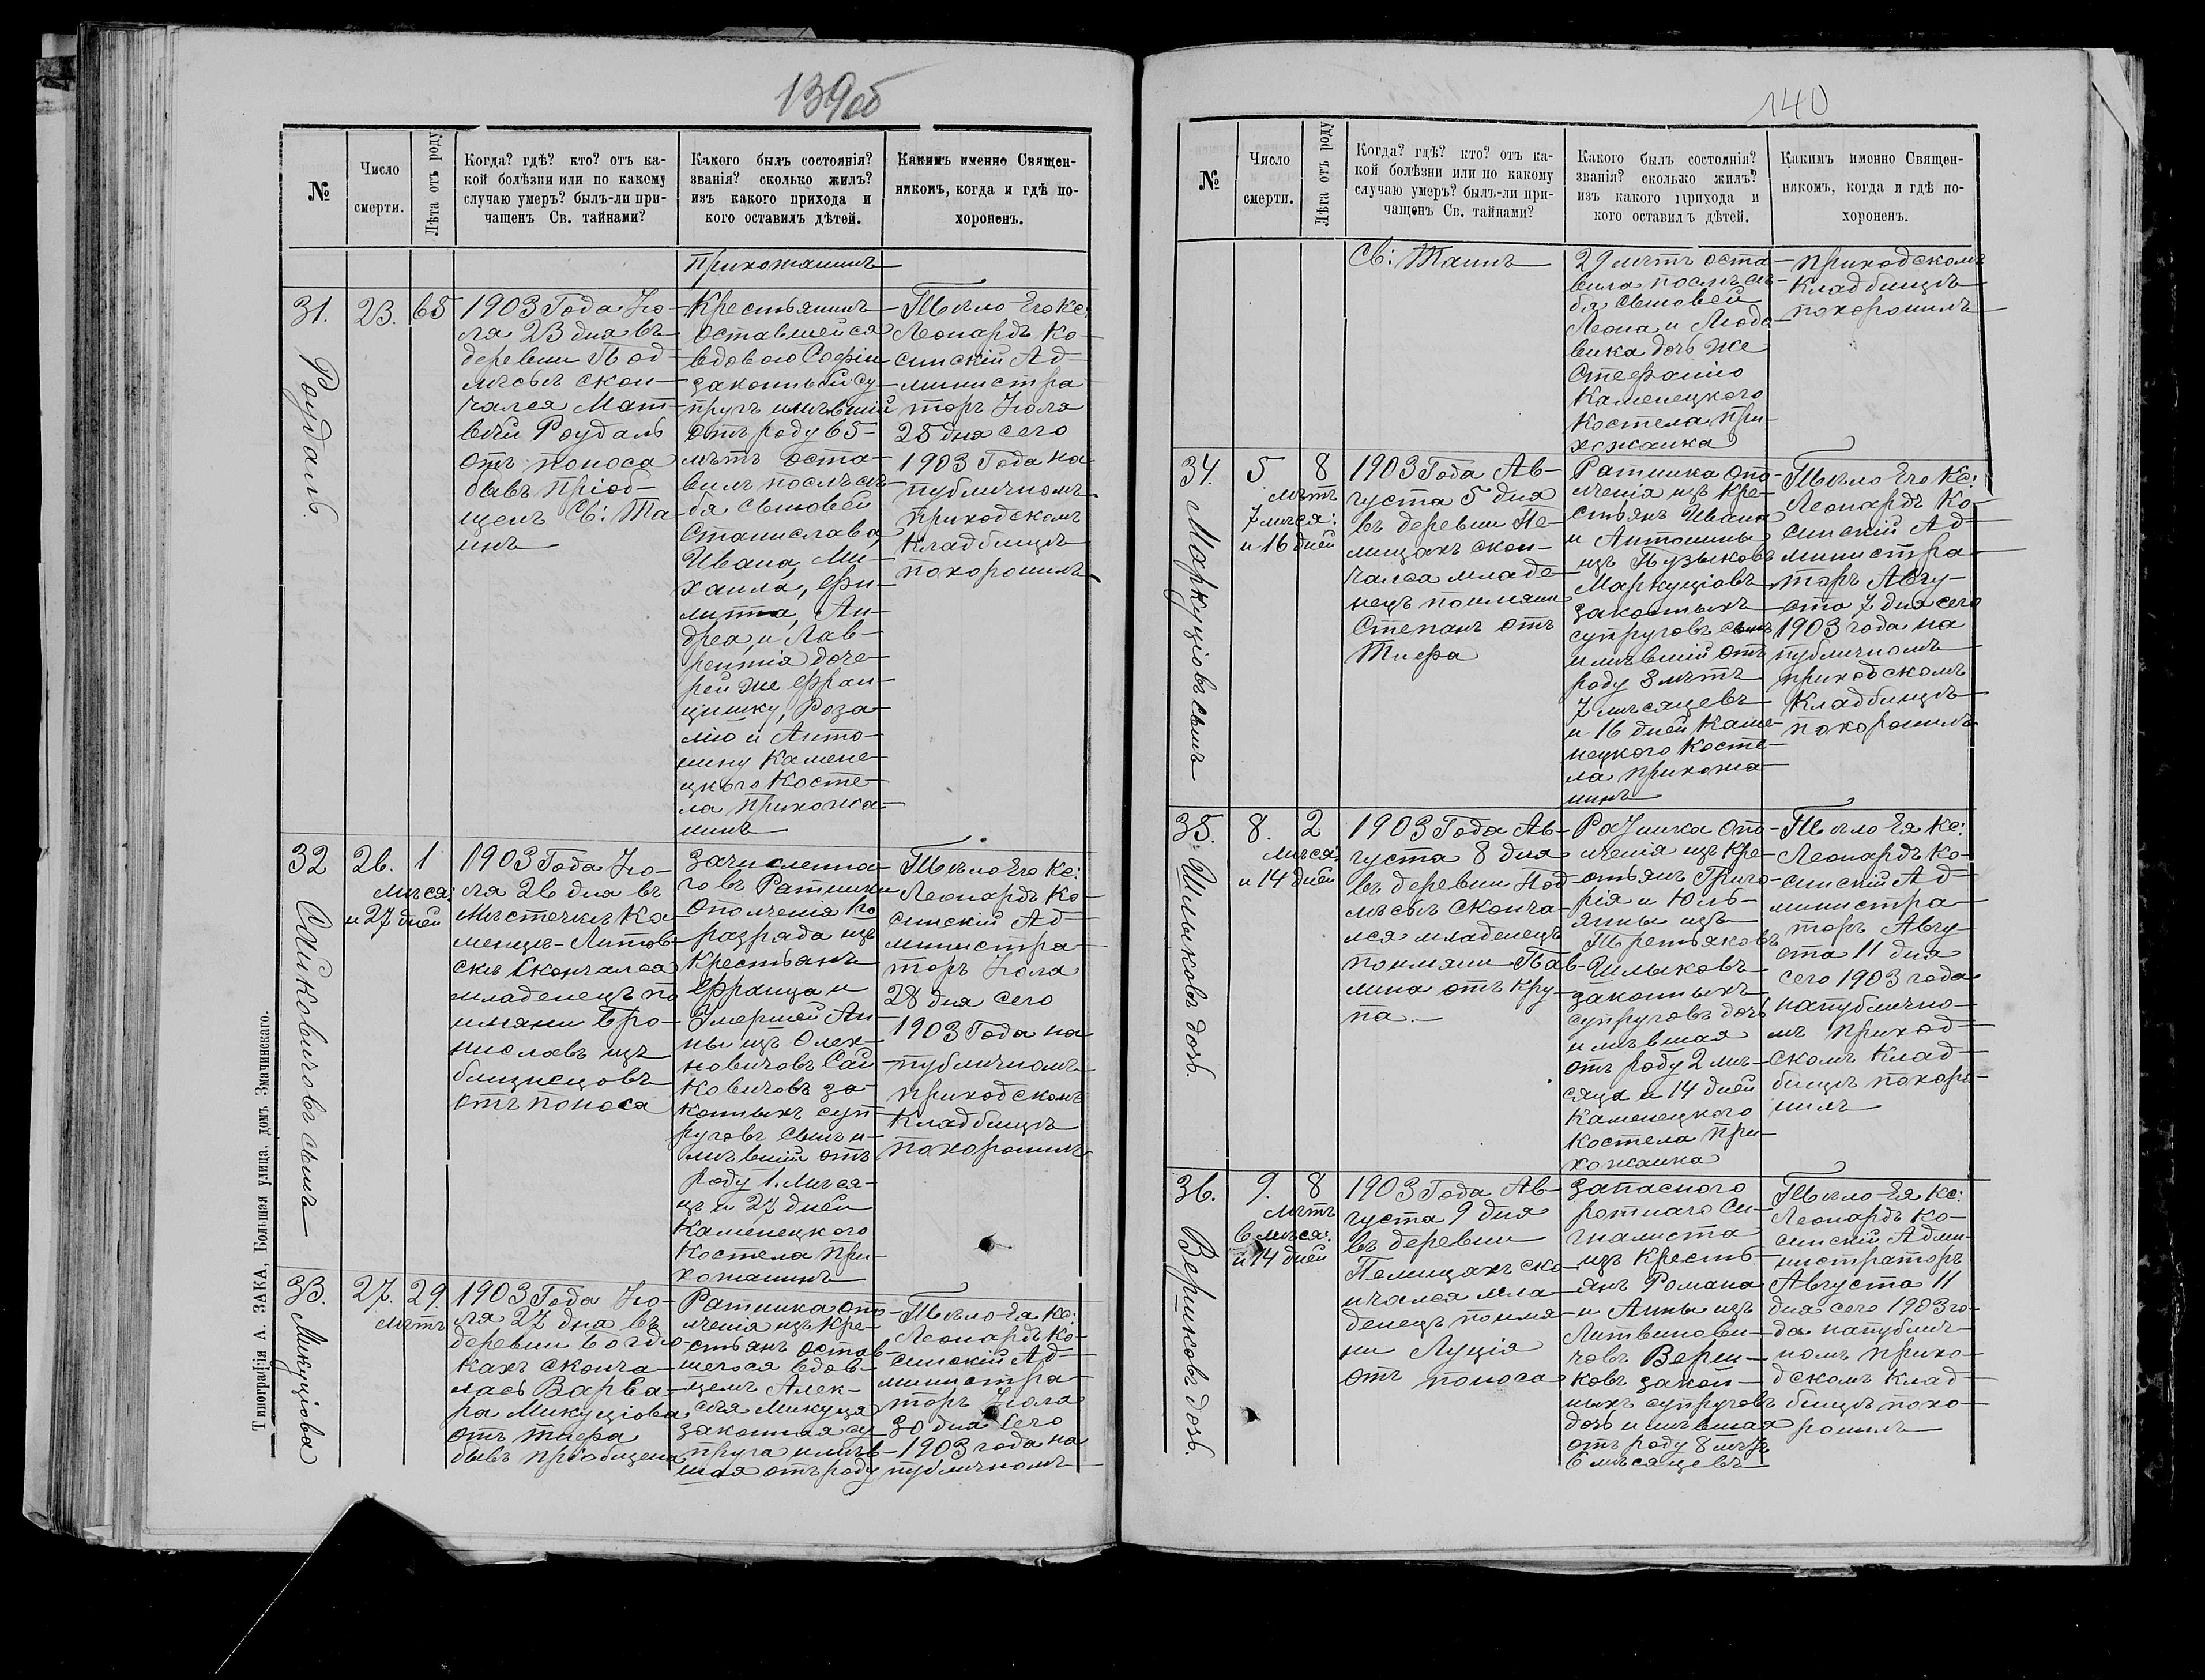 139об
№
Число
смерти.
Лѣта отъ роду
Когда? гдѣ? кто? отъ ка-
кой болѣзни или по какому
случаю умеръ? былъ-ли при-
чащенъ Св. тайнами?
Какого былъ состоянія?
званія? сколько жилъ?
изъ какого прихода и
кого оставилъ дѣтей.
Какимъ именно Священ-
никомъ, когда и гдѣ по-
хороненъ.
прихожанинъ
31.
Роудаль.
23.
65
1903 Года Ію-
ля 23 дня въ
деревни Под-
лѣсьѣ скон-
чался Мат-
вѣй Роудаль
отъ поноса
бывъ пріоб-
щенъ Св: Та-
инъ
Крестьянинъ
оставшейся
вдовою Софіи
законный су-
пругъ имѣвшій
отъ роду 65
лѣтъ оста-
вилъ послѣ се-
бя сыновей
Станислава,
Ивана, Ми-
хаила, Фи-
липпа, Ан-
дрея, и Лав-
рентія доче-
рей же Фран-
цишку, Роза-
лію и Анто-
нину Камене-
цкого Косте-
ла прихожа-
нинъ
Тѣло Его Кс:
Леонардъ Ко-
синскій Ад-
министра-
торъ Іюля
25 дня сего
1903 Года на
публичномъ
приходскомъ
Кладбищѣ
похоронилъ
32
Сайковичовъ сынъ
26.
1
мѣся:
и 27 дней
1903 Года Ію-
ля 26 дня въ
Мѣстечкѣ Ка-
менцѣ-Литов-
скѣ скончался
младенецъ по
имяни Бро-
ниславъ изъ
близнецовъ
отъ поноса
зачисленна-
го въ Ратники
Ополченія Іго
разряда изъ
Крестьянъ
Франца и
Умершей Ан-
ны изъ Олех-
новичовъ Сай-
ковичовъ за-
конныхъ суп-
руговъ сынъ и-
мѣвшій отъ
роду 1. мѣся-
цъ и 27 дней
Каменецкого
Костела при-
хожанинъ
Тѣло Его Кс:
Леонардъ Ко-
синскій Ад-
министра-
торъ Іюля
28 дня сего
1903 Года на
публичномъ
приходскомъ
Кладбищѣ
похоронилъ
33.
Микуціова
27.
29.
лѣтъ
1903 Года Ію-
ля 27 дня въ
деревни Богдю-
кахъ сконча-
лась Варва-
ра Микуціова
отъ тифа
бывъ пріобщена
Ратника опо-
лченія изъ Кре-
стьянъ остав-
шегося вдов-
цемъ Алек-
сѣя Микуця
законная су-
пруга имѣв-
шая отъ роду
Тѣло Ея Кс:
Леонардъ Ко-
синскій Ад-
министра-
торъ Іюля
30 дня сего
1903 года на
публичномъ
Типографія А. ЗАКА, Большая улица, домъ Змачинскаго.
140
№
Число
смерти.
Лѣта отъ роду
Когда? гдѣ? кто? отъ ка-
кой болѣзни или по какому
случаю умеръ? былъ-ли при-
чащенъ Св. тайнами?
Какого былъ состоянія?
званія? сколько жилъ?
изъ какого прихода и
кого оставилъ дѣтей.
Какимъ именно Священ-
никомъ, когда и гдѣ по-
хороненъ.
Св: Таинъ
29 лѣтъ оста-
вила послѣ се-
бя сыновей
Леона и Людо-
вика дочь же
Стефанію
Каменецкого
Костела при-
хожанка
приходскомъ
Кладбищѣ
похоронилъ
34.
Маркуціовъ сынъ
5.
8
лѣтъ
7 мѣся:
и 16 дней
1903 Года Ав-
густа 5 дня
въ деревни Пе-
лищахъ скон-
чался младе-
нецъ поимяни
Степанъ отъ
Тифа
Ратника опо-
лченія изъ Кре-
стьянъ Ивана
и Антонины
изъ Пузыковъ
Маркуціовъ
законныхъ
супруговъ сынъ
имѣвшій отъ
роду 8 лѣтъ
7 мѣсяцевъ
и 16 дней Каме-
нецкого Косте-
ла прихожа-
нинъ
Тѣло Его Кс:
Леонардъ Ко-
синскій Ад-
министра-
торъ Авгу-
ста 7 дня сего
1903 года на
публичномъ
приходскомъ
Кладбищѣ
похоронилъ
35.
Шлыковъ дочь.
8.
2
мѣся:
и 14 дней
1903 Года Ав-
густа 8 дня
въ деревни Под-
лѣсьѣ сконча-
лся младенецъ
поимяни Пав-
лина отъ кру-
па.
Ратника опо-
лченія изъ Кре-
стьянъ Григо-
рія и Юль-
янны изъ
Третьяковъ
Шлыковъ
законныхъ
супруговъ дочь
имѣвшая
отъ роду 2 мѣ-
сяца и 14 дней
Каменецкого
Костела при-
хожанка
Тѣло Ея Кс:
Леонардъ Ко-
синскій Ад-
министра-
торъ Авгу-
ста 11 дня
сего 1903 года
на публично-
мъ приход-
скомъ Клад-
бищѣ похоро-
нилъ
36.
Вериковъ дочь.
9.
8
лѣтъ
6 мѣся:
и 14 дней
1903 Года Ав-
густа 9 дня
въ деревни
Пелищахъ ско-
нчался мла-
денецъ поимя-
ни Луція
отъ поноса
запасного
ротнаго Си-
гналиста
изъ Кресть-
янъ Романа
и Анны изъ
Литвинови-
човъ Вери-
ковъ закон-
ныхъ супруговъ
дочь имѣвшая
отъ роду 8 лѣтъ
6 мѣсяцевъ
Тѣло Ея Кс:
Леонардъ Ко-
синскій Адми-
нистраторъ
Августа 11
дня сего 1903 го-
да на публич-
номъ прихо-
дскомъ Клад-
бищѣ похо-
ронилъ